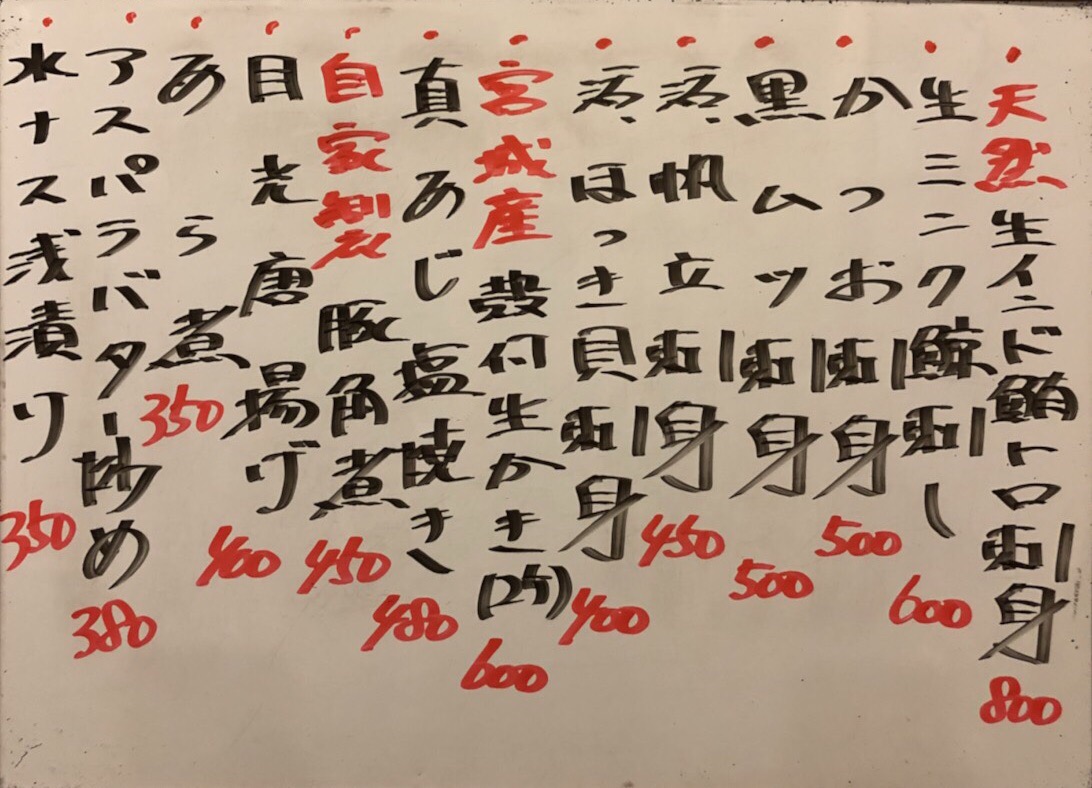 天然生インド鮪トロ刺身 800
生ミンク鯨刺し 600
かつお刺身 500
黒ムツ刺身 500
活帆立刺身 450
活ほっき貝刺身 400
宮城産殻付生かき(2ケ) 600
真あじ塩焼き 480
自家製豚角煮 450
目光唐揚げ 400
あら煮 350
アスパラバター炒め 380
水ナス浅漬り 350